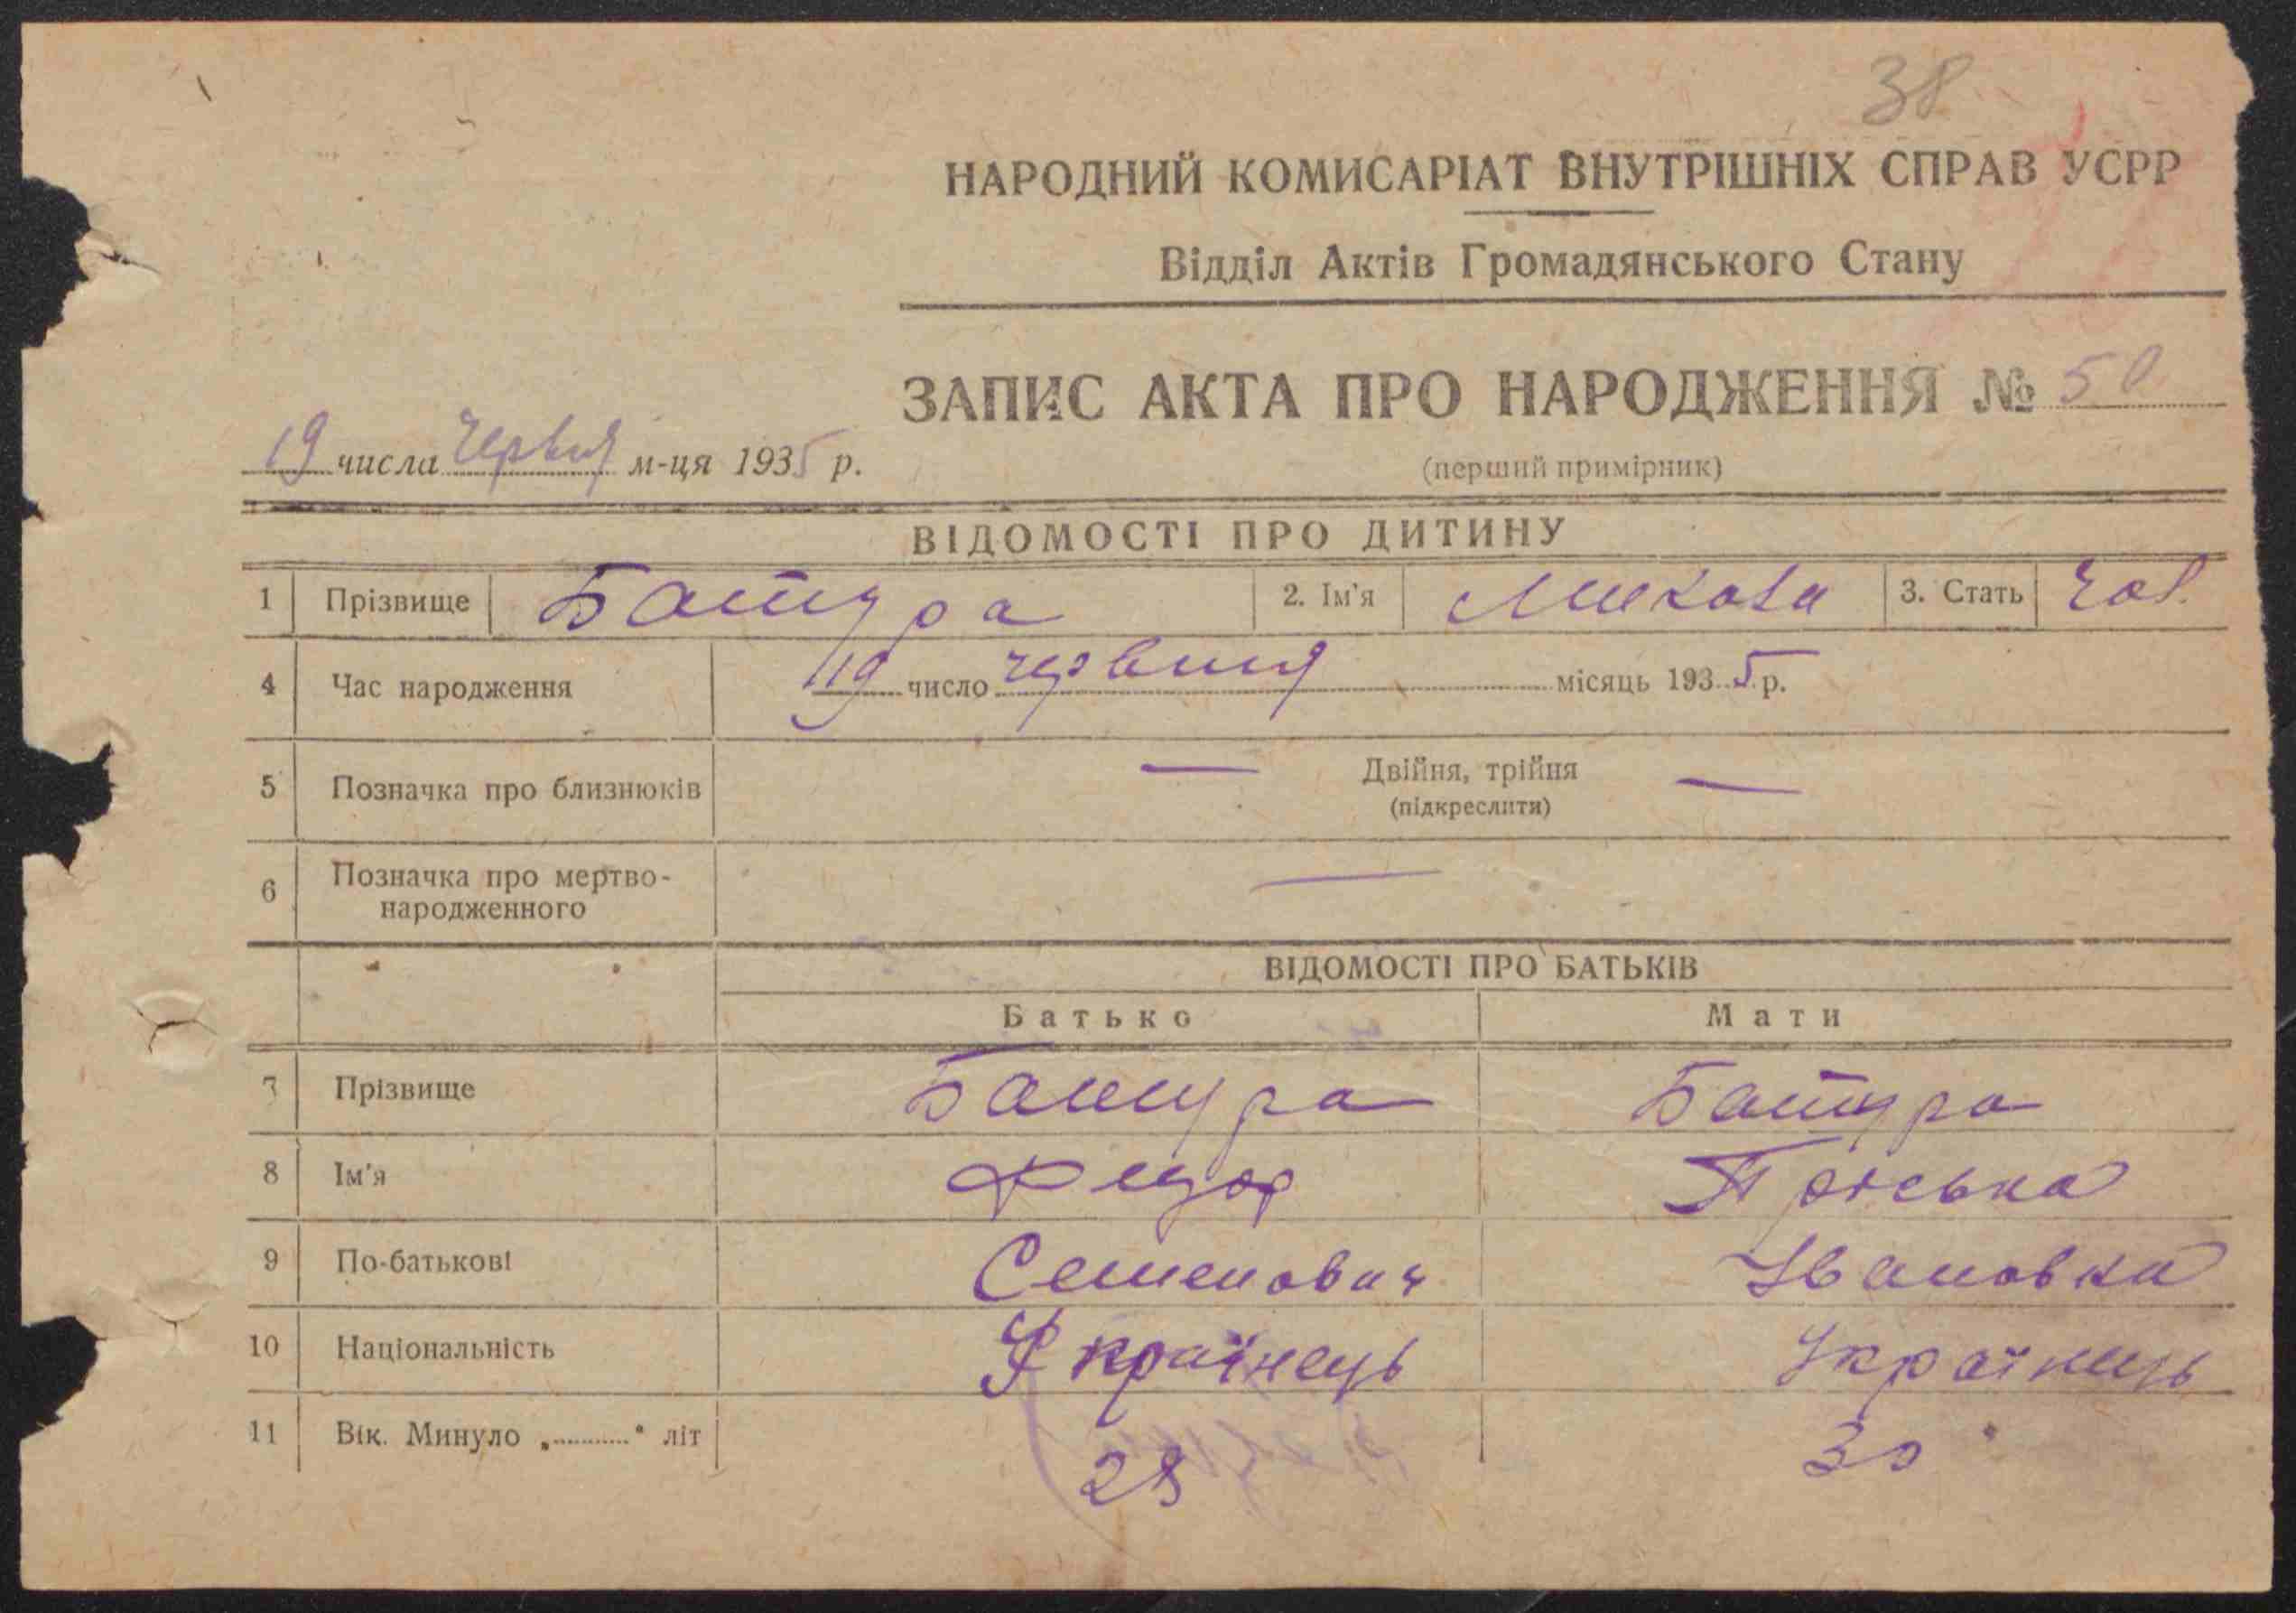 38
НАРОДНИЙ КОМИСАРІАТ ВНУТРІШНІХ СПРАВ УСРР
Відділ Актів Громадянського Стану
ЗАПИС АКТА ПРО НАРОДЖЕННЯ № 50
19 числа червня м-ця 1935 р.
(перший примірник)
ВІДОМОСТІ ПРО ДИТИНУ
1 Прізвище Батура 2. Ім'я Микола 3. Стать Чол.
4 Час народження 19 число червня місяць 1935 р.
5 Позначка про близнюків — Двійня, трійня —
(підкреслити)
6 Позначка про мертво-
народженного —
ВІДОМОСТІ ПРО БАТЬКІВ
Батько Мати
7 Прізвище Батура Батура
8 Ім'я Федор Пріська
9 По-батькові Семенович Івановна
10 Національність Українець Українець
11 Вік. Минуло „..........“ літ 28 30